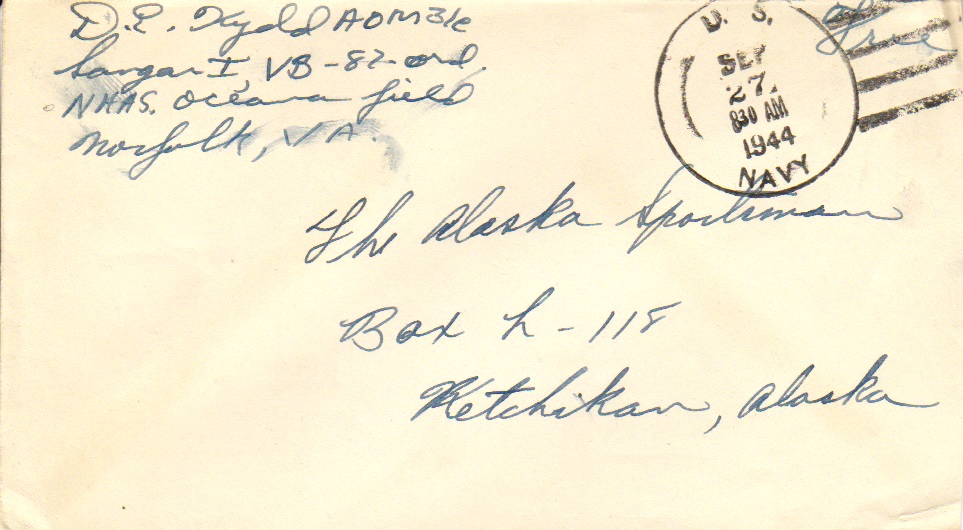 D. E. Kydd AOM3/c
Hangar I, VB-82-ord.
NHAS. Oceana field
Norfolk, VA.
Free
U. S.
SEP
27
830 AM
1944
NAVY
The Alaska Sportsman
Box L-118
Ketchikan, Alaska